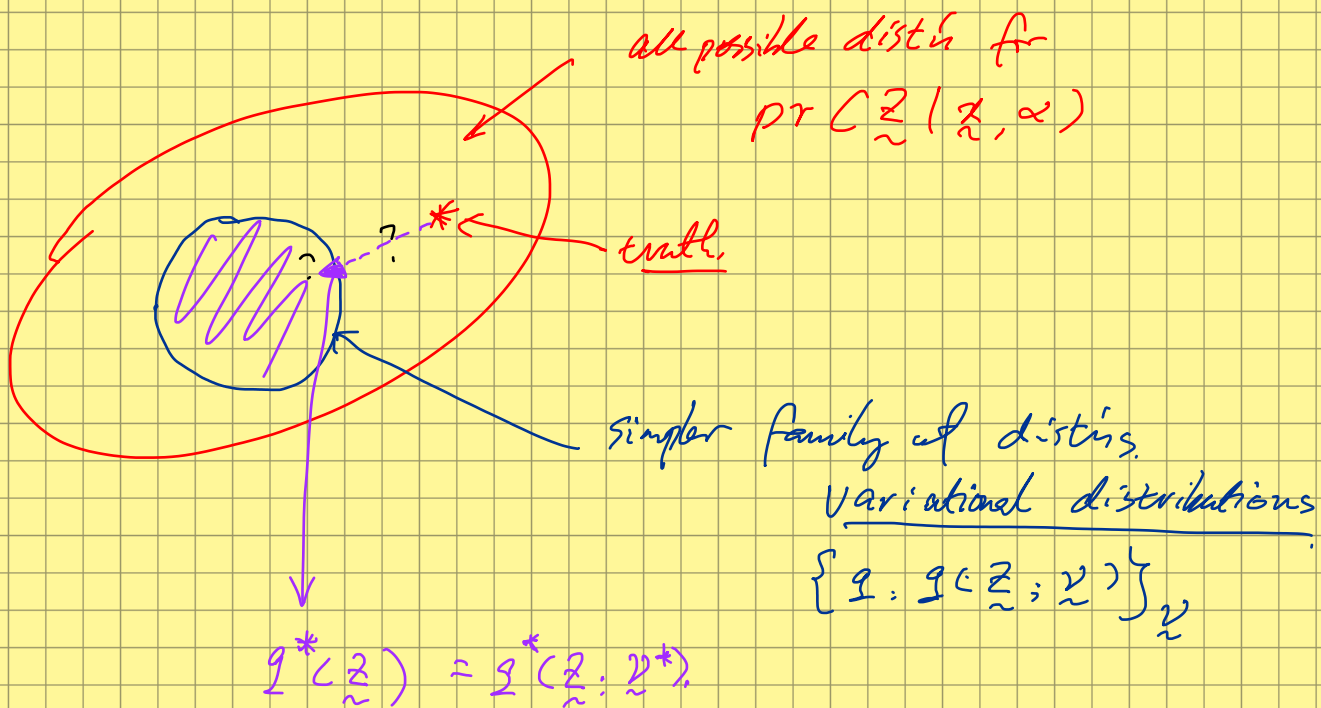 all possible distn for
pr(z̰ | x̰, α)
?
?
*
truth.
simpler family of distns.
variational distributions.
{q : q(z̰ ; ν̰)}ν̰
q*(z̰) = q*(z̰ ; ν̰*).